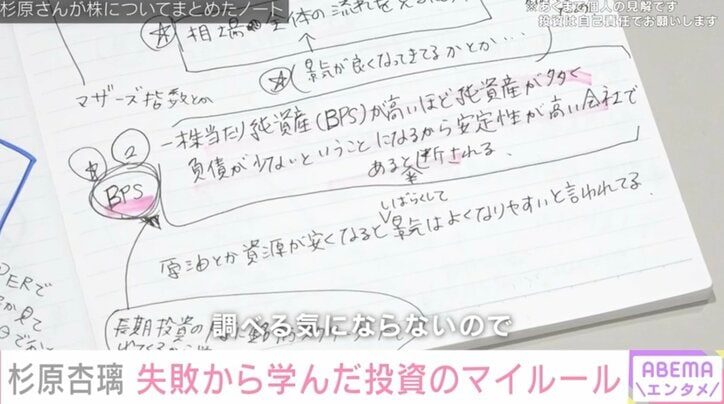 杉原さんが株についてまとめたノート
※あくまで個人の見解です
投資は自己責任でお願いします
相場全体の流れを
景気が良くなってきてるかとか…
マザーズ指数とか
BPS
一株当たり純資産(BPS)が高いほど純資産が多く
負債が少ないということになるから安定性が高い会社で
あると断される。
しばらくして
原油とか資源が安くなると景気はよくなりやすいと言われてる。
PERで
見て
長期投資の
調べる気にならないので
杉原杏璃 失敗から学んだ投資のマイルール
ABEMA
エンタメ